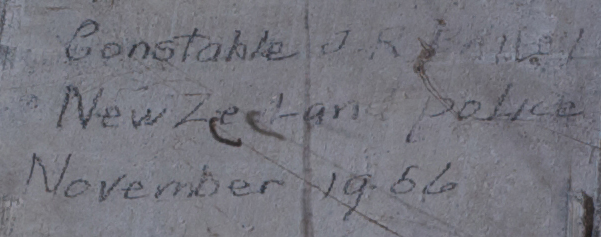 Constable J. R.
New Zealand Police
November 1956